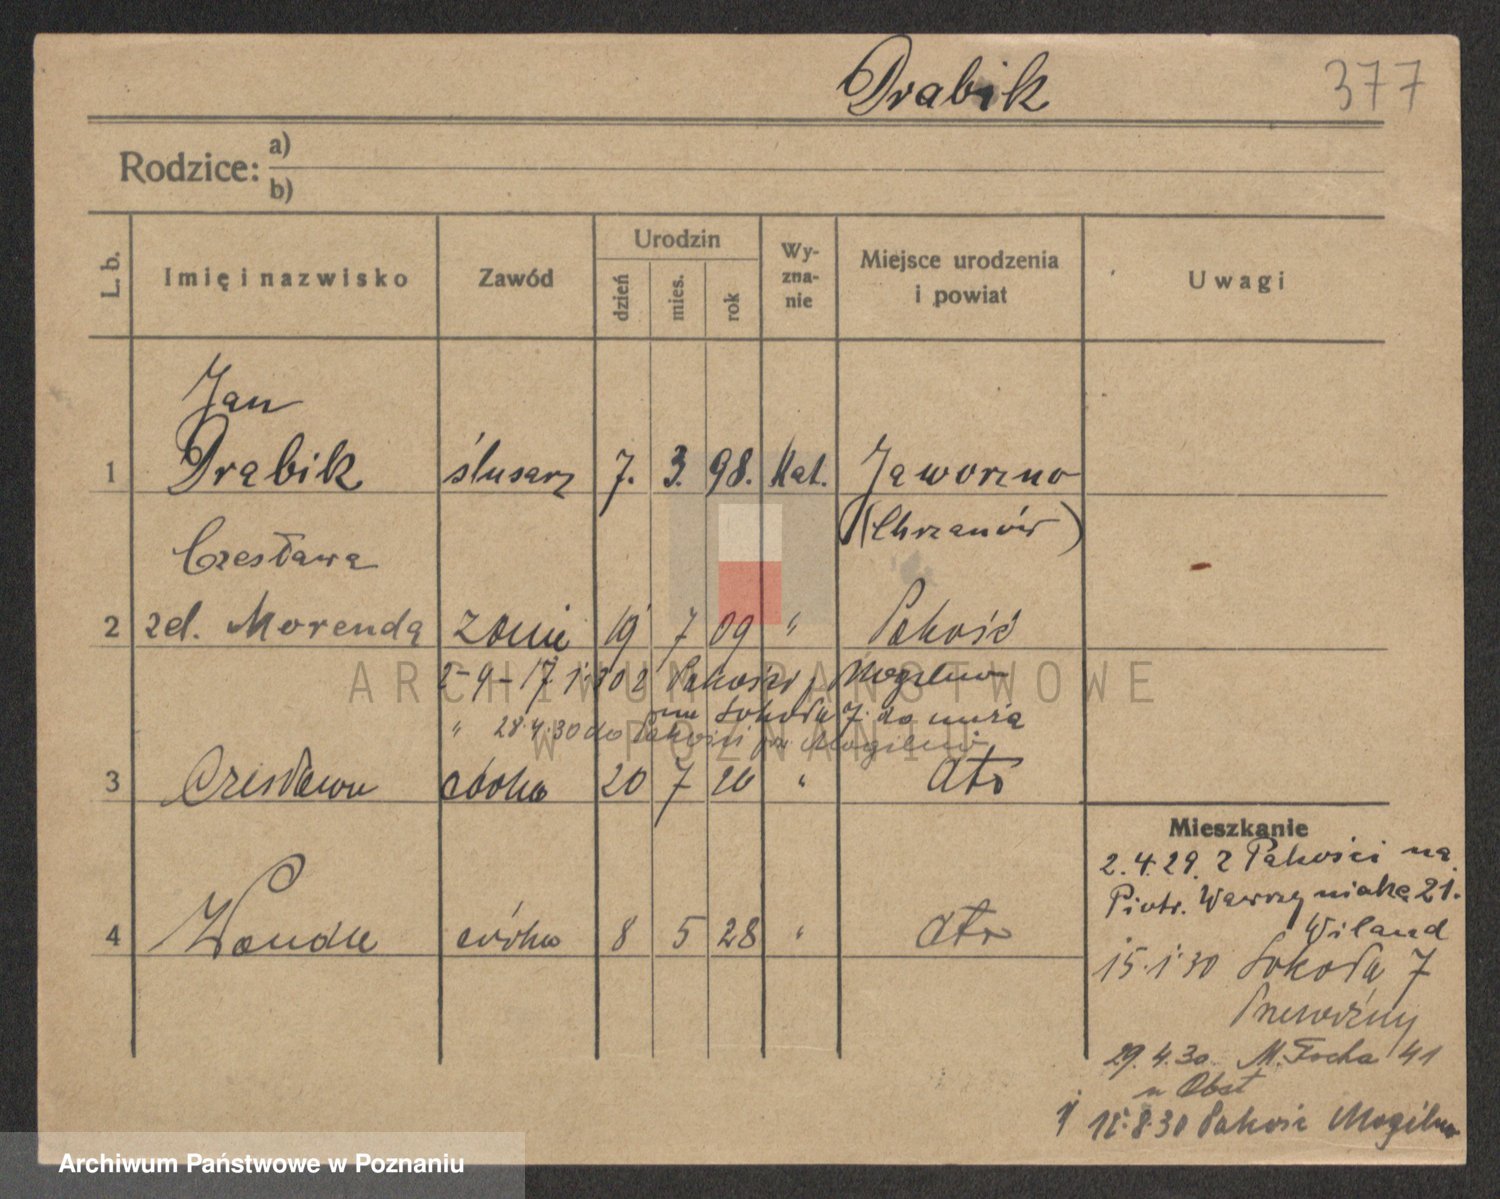 Drabik
377
Rodzice: a)
b)
L. b.
Imię i nazwisko
Zawód
Urodzin
dzień
mies.
rok
Wy-
zna-
nie
Miejsce urodzenia
i powiat
Uwagi
Jan
1 Drabik ślusarz 7. 3. 98. Kat. Jaworzno
(Chrzanów)
Czesława
2 zd. Morenda żona 19 7 09 " Pakość
1.30 z Pakości p. Mogilno
na Sokoła 7. do męża
" 28.4.30 do Pakości pow Mogilno
3 Czesława córka 20 7 26 " ato
4 Wanda córka 8 5 28 " ato
Mieszkanie
2.4.29. z Pakości na
Piotr. Wawrzyniaka 21.
Wiland
15.1.30 Sokoła 7
29.4.30. M. Focha 41
u Obst
15.8.30 Pakość Mogilno
ARCHIWUM PAŃSTWOWE
W POZNANIU
Archiwum Państwowe w Poznaniu